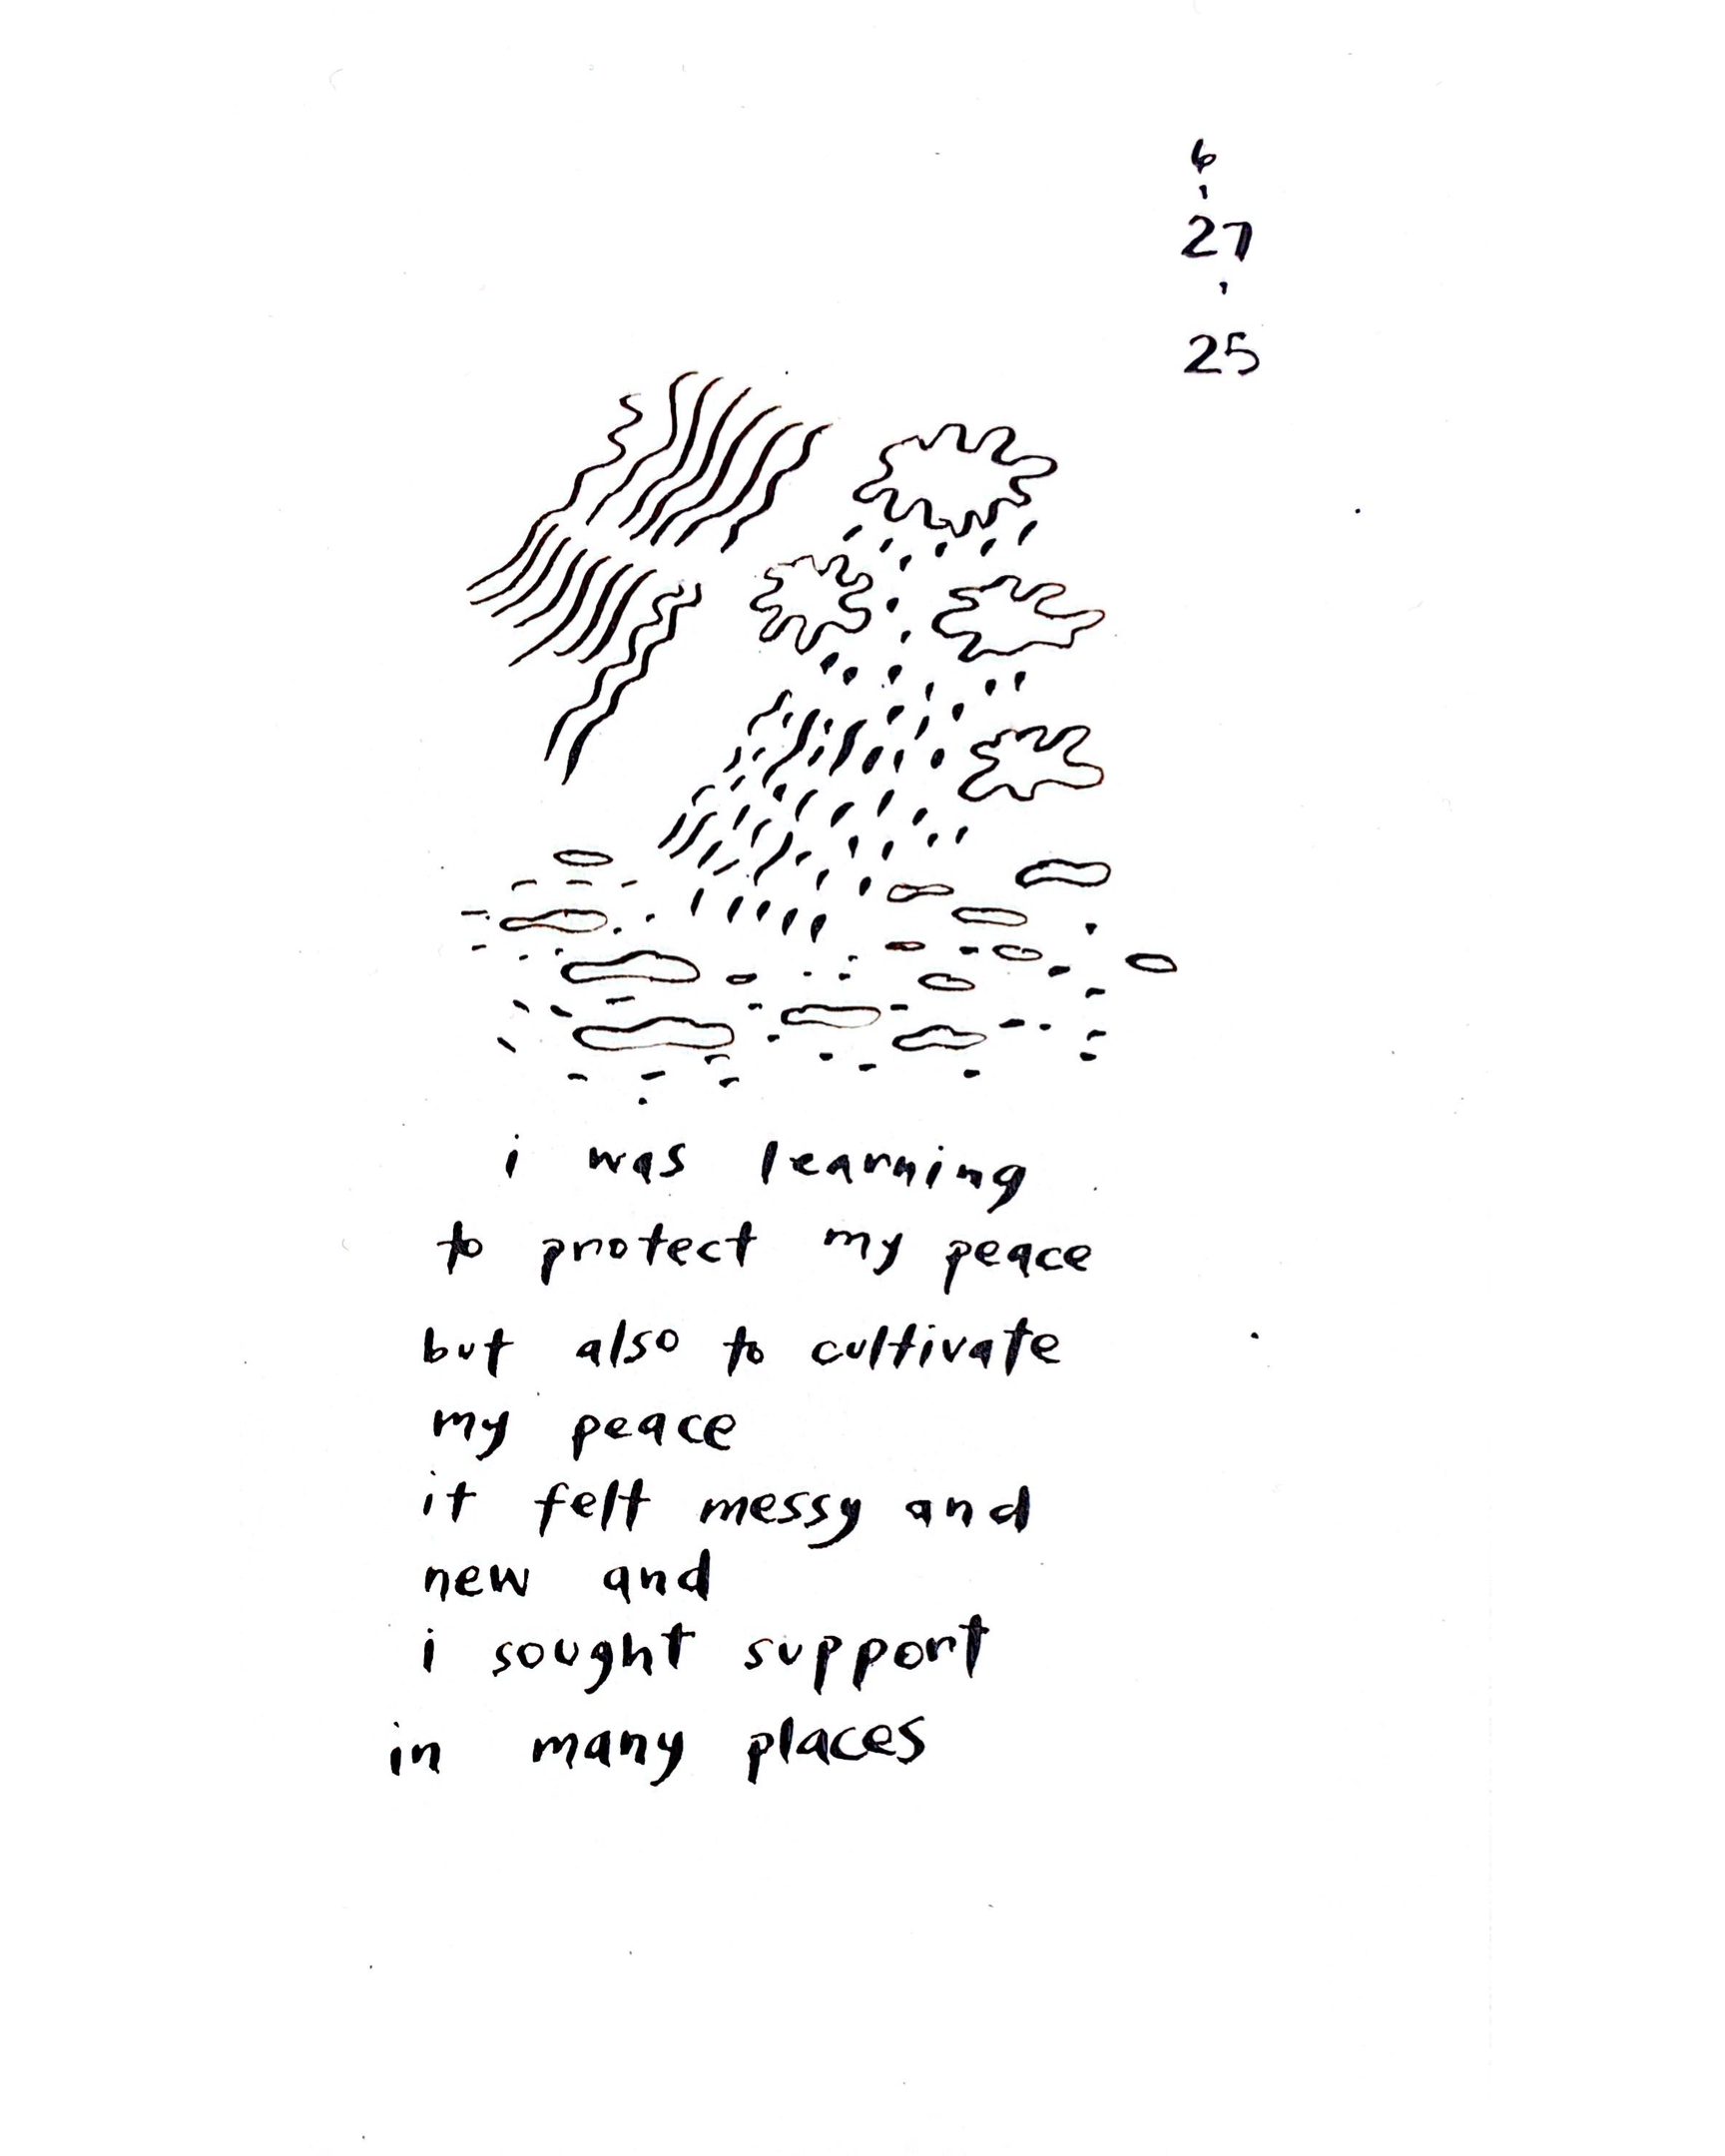 6
'
27
'
25
i was learning
to protect my peace
but also to cultivate
my peace
it felt messy and
new and
i sought support
in many places